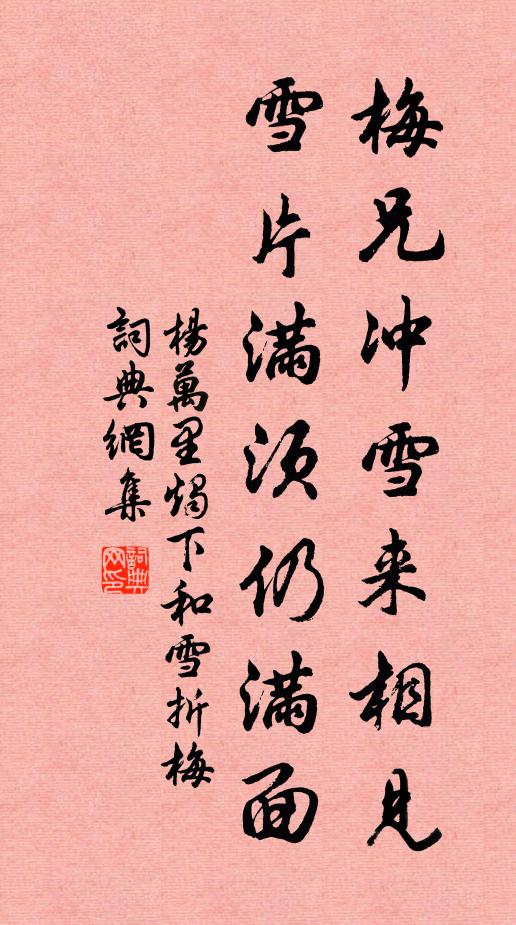 梅兄冲雪来相見
雪片滿須仍滿面
楊萬里燭下和雪折梅
詞典網集
詞典网印